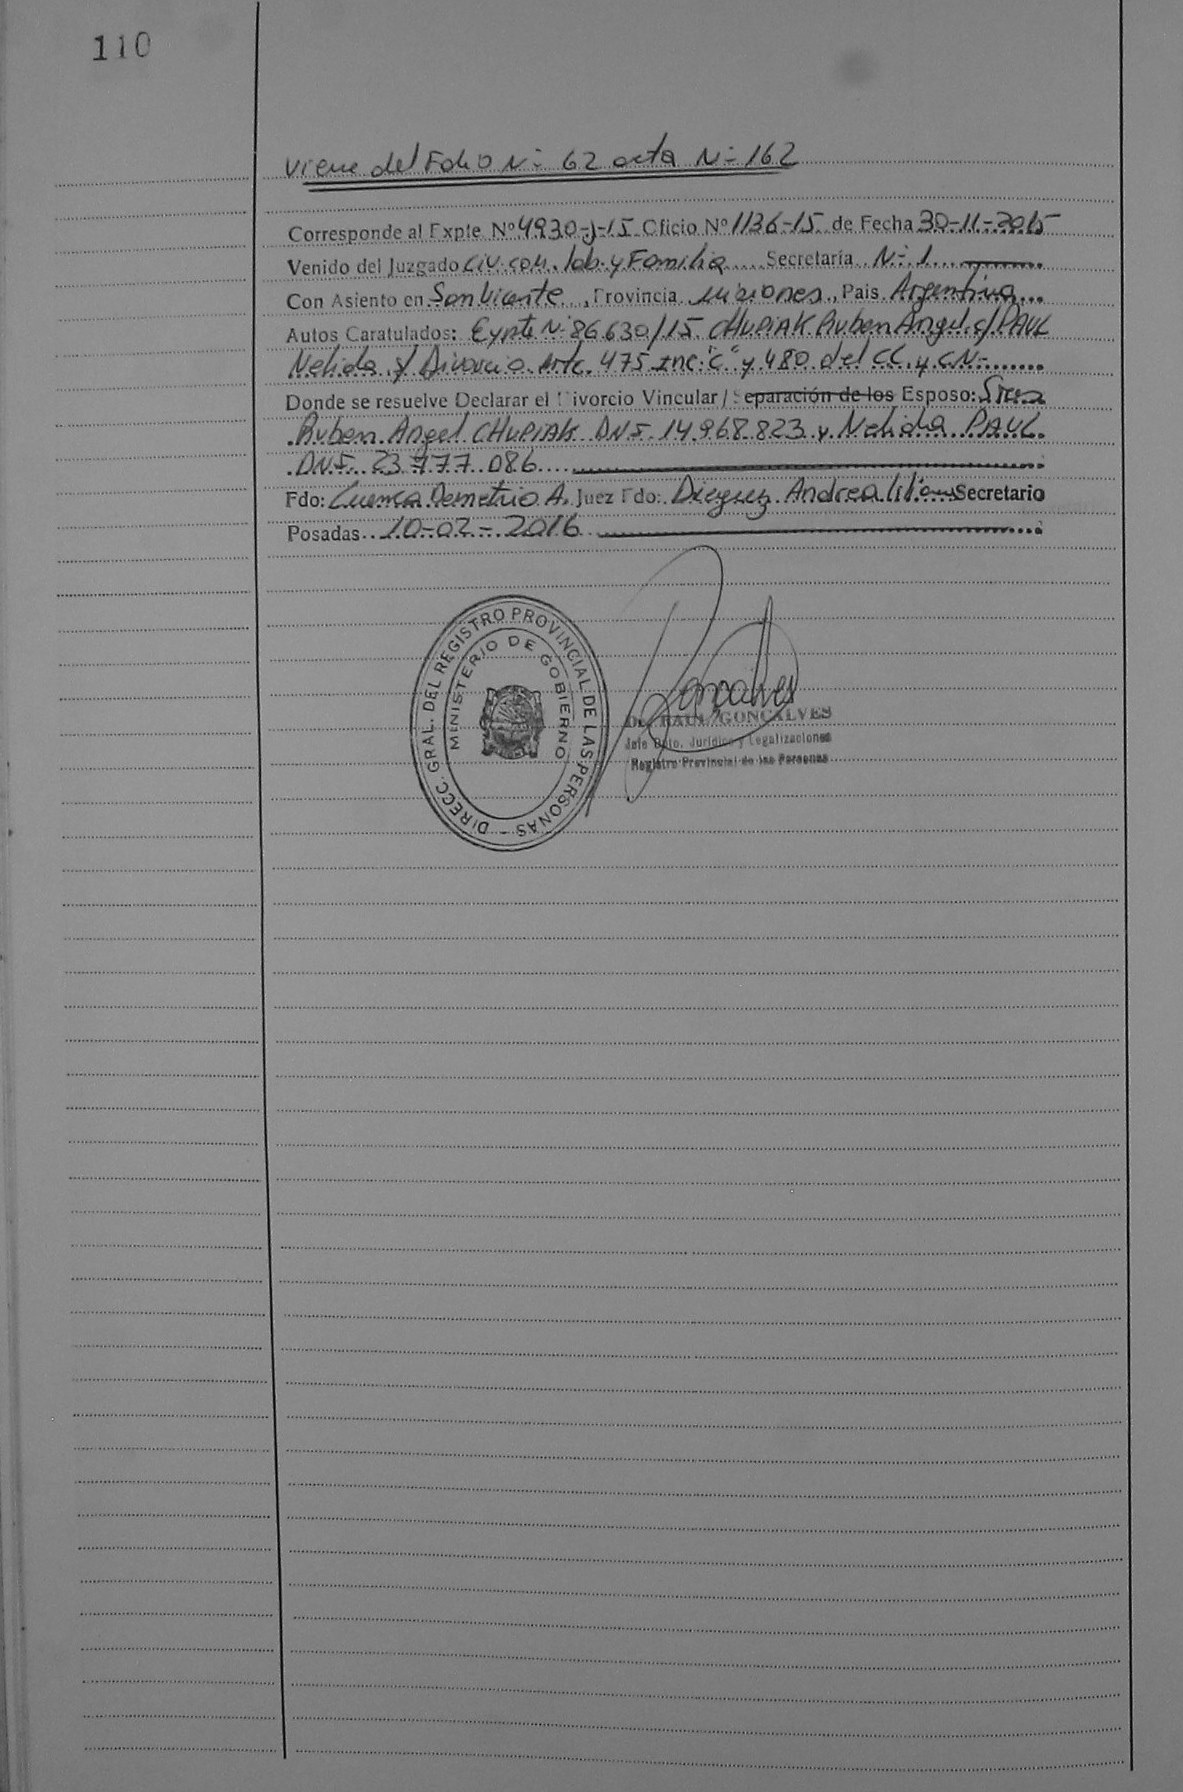 110
Viene del Folio Nº 62 acta Nº 162
Corresponde al Expte Nº 4930-J-15 Oficio Nº 1136-15 de Fecha 30-11-2015
Venido del Juzgado Civ. com. lab. y Familia Secretaría Nº 1
Con Asiento en San Vicente, Provincia Misiones, País Argentina
Autos Caratulados: Expte Nº 86.630/15 CHUPIAK Ruben Angel c/ PAUL
Nelida s/ Divorcio Artc. 475 Inc. "C" y 480 del CC. y CN.
Donde se resuelve Declarar el Divorcio Vincular / Separación de los Esposo: Sres
Ruben Angel CHUPIAK DNI 14.968.823 y Nelida PAUL
DNI 23.777.086
Fdo: Cuenca Demetrio A. Juez Fdo: Dieguez Andrea Secretario
Posadas 10-02-2016
DIRECC. GRAL. DEL REGISTRO PROVINCIAL DE LAS PERSONAS -
MINISTERIO DE GOBIERNO
Dr. RAUL GONCALVES
Jefe Dpto. Jurídico y Legalizaciones
Registro Provincial de las Personas